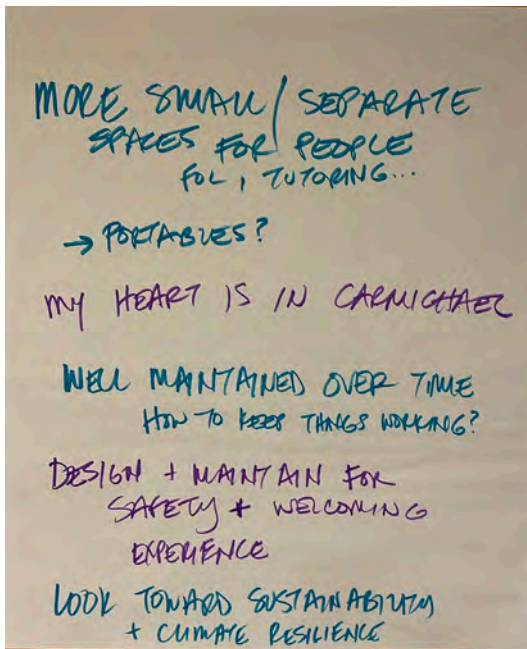 MORE SMALL / SEPARATE
SPACES FOR PEOPLE
FOL, TUTORING...
→ PORTABLES?
MY HEART IS IN CARMICHAEL
WELL MAINTAINED OVER TIME
HOW TO KEEP THINGS WORKING?
DESIGN + MAINTAIN FOR
SAFETY + WELCOMING
EXPERIENCE
LOOK TOWARD SUSTAINABILITY
+ CLIMATE RESILIENCE